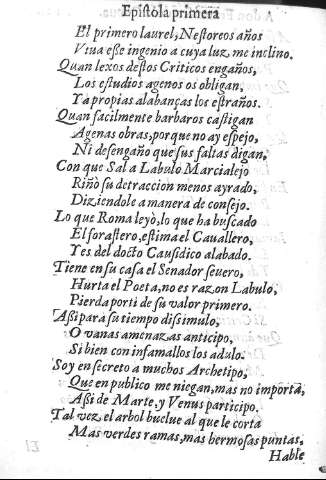 Epistola primera
El primero laurel, Nestoreos años
Viua esse ingenio a cuya luz, me inclino.
Quan lexos destos Criticos engaños,
Los estudios agenos os obligan,
Ya propias alabanças los estraños.
Quan facilmente barbaros castigan
Agenas obras, porque no ay espejo,
Ni desengaño que sus faltas digan,
Con que Sal a Labulo Marcialejo
Riñò su detraccion menos ayrado,
Diziendole a manera de consejo.
Lo que Roma leyò, lo que ha buscado
El forastero, estima el Cauallero,
Yes del docto Causidico alabado.
Tiene en su casa el Senador seuero,
Hurta el Poeta, no es razon Labulo,
Pierda por ti de su valor primero.
Assi para su tiempo dissimulo,
O vanas amenazas anticipo,
Si bien con infamallos los adulo.
Soy en secreto a muchos Archetipo,
Que en publico me niegan, mas no importa,
Assi de Marte, y Venus participo.
Tal vez el arbol buelue al que le corta
Mas verdes ramas, mas hermosas puntas,
Hable